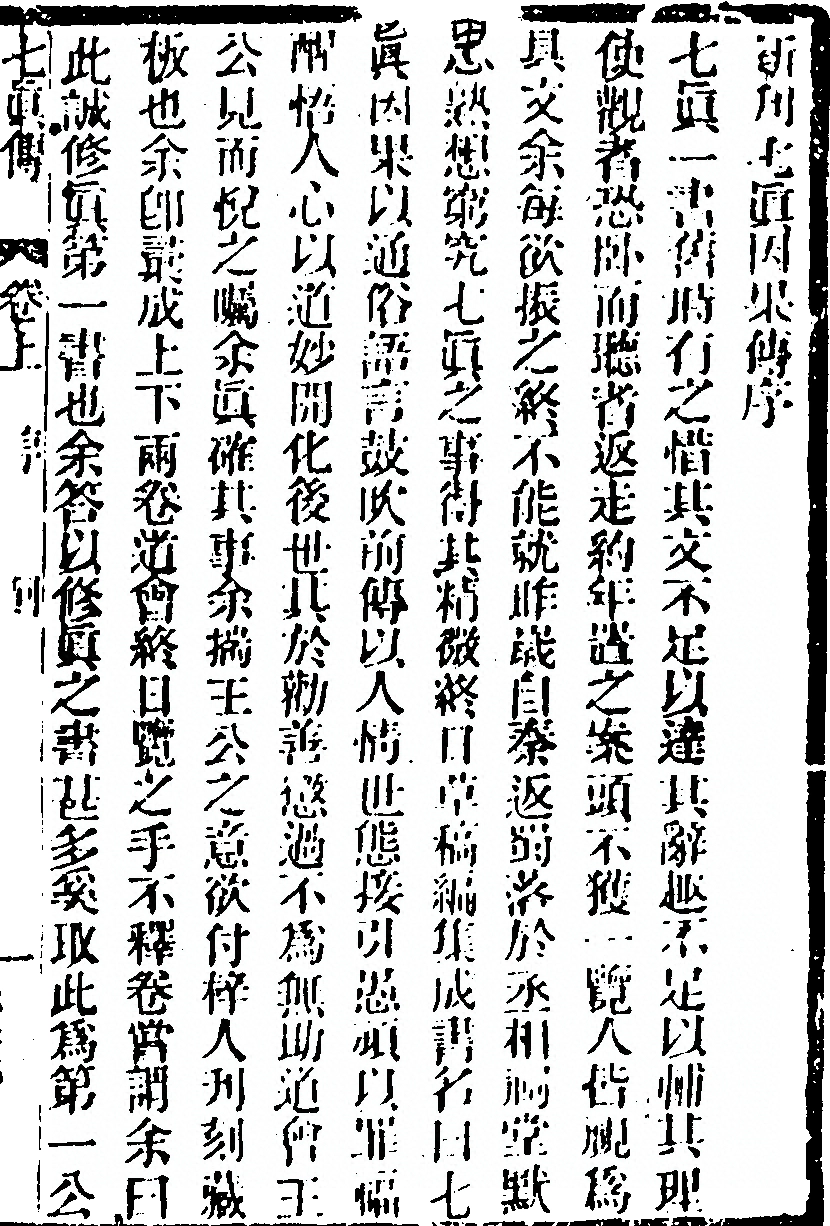 新刊七眞因果傳序
七眞一書舊時有之惜其文不足以達其辭趣不足以輔其理
使觀者恐卧而聽者返走約年置之案頭不獲一覽人皆視爲
具文余每欲振之終不能就昨歲自秦返蜀落於丞相祠堂默
思熟想窮究七眞之事得其精微終日草稿編集成書名曰七
眞因果以通俗語言鼓吹前傳以人情世態接引愚頑以罪福
醒悟人心以道妙開化後世其於勸善懲過不爲無助道會王
公見而悅之囑余眞確其事余揣王公之意欲付梓人刊刻藏
板也余卽裁成上下兩卷道會終日覽之手不釋卷嘗謂余曰
此誠修眞第一書也余答以修眞之書甚多奚取此爲第一公
七眞傳 卷上 序 一